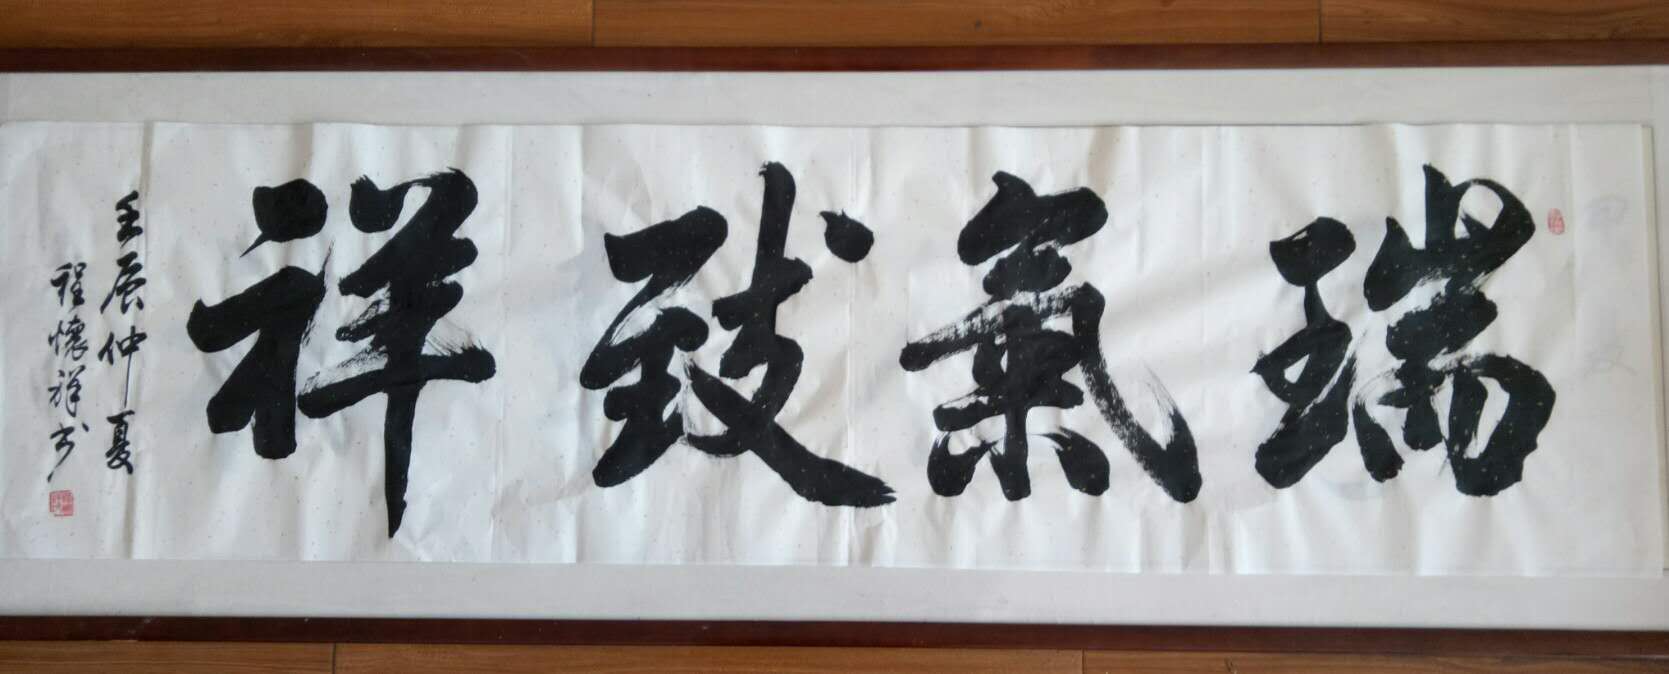 瑞氣致祥
壬辰仲夏
程懷祥书